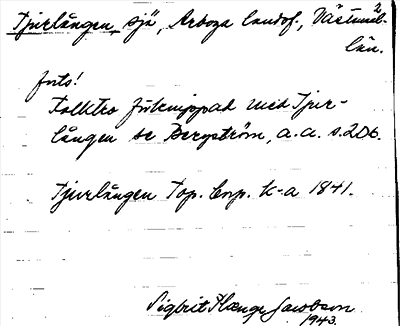 Tjurlången, sjö, Arboga landsf., Västmanl.
län.
forts!
Folktro förknippad med Tjur-
lången se Bergström, a.a. s. 206.
Tjurlången Top. Corp. K-a 1841.
Sigbrit Plænge Jacobson
1943.